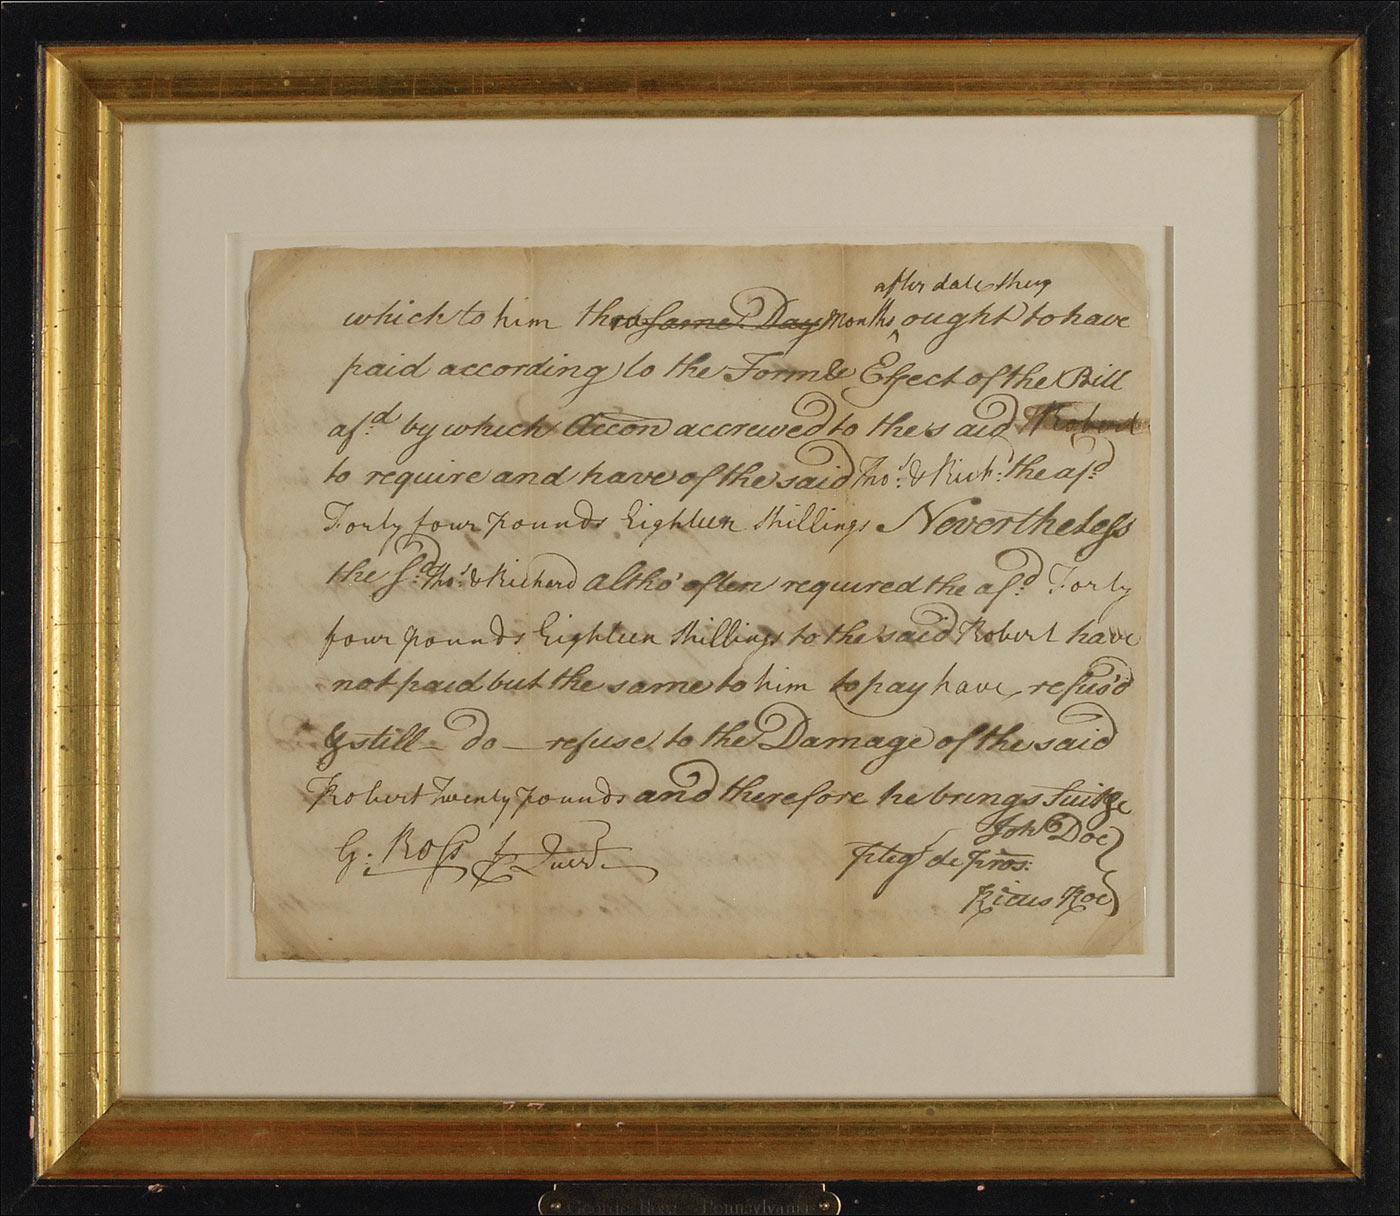 after date they
which to him three same Day Months ^ ought to have
paid according to the Form & Effect of the Bill
afsd by which Accon accrewed to the said Robert
to require and have of the said Thos. & Richd. the afsd
Forty four pounds Eighteen Shillings Nevertheless
the sd. Thos. & Richard altho' often required the afsd. Forty
four pounds Eighteen Shillings to the said Robert have
not paid but the same to him to pay have refus'd
& still - do - refuse to the Damage of the said
Robert Twenty pounds and therefore he brings Suit &c
John Doe
G. Ross
pleg de pros:
Ricus Roe
George Ross Pennsylvania